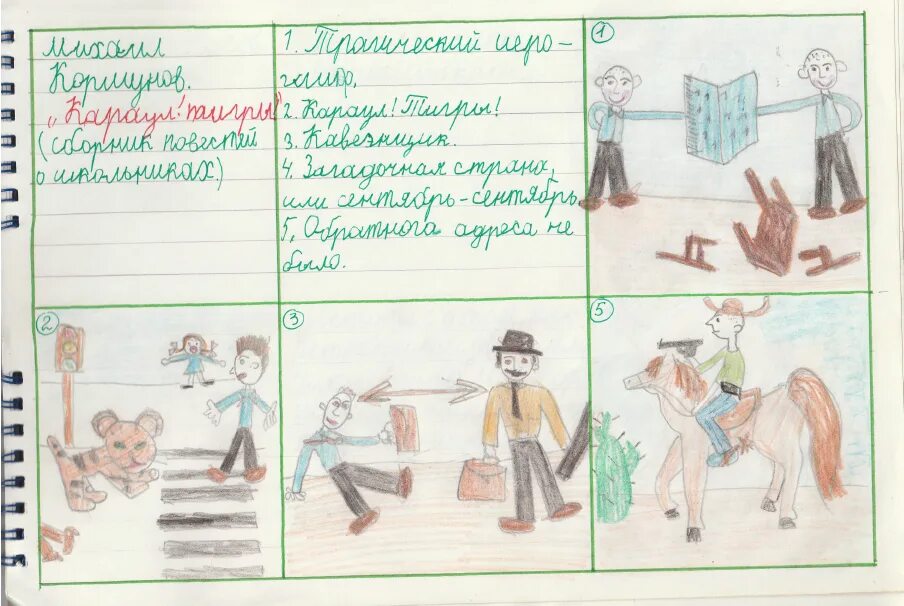 Михаил
Коршунов.
„Караул! тигры!"
(сборник повестей
о школьниках)
1. Трагический иеро-
глиф,
2. Караул! Тигры!
3.
4. Загадочная страна,
или сентябрь-сентябрь
5. Обратного адреса не
было.
1
2
3
5